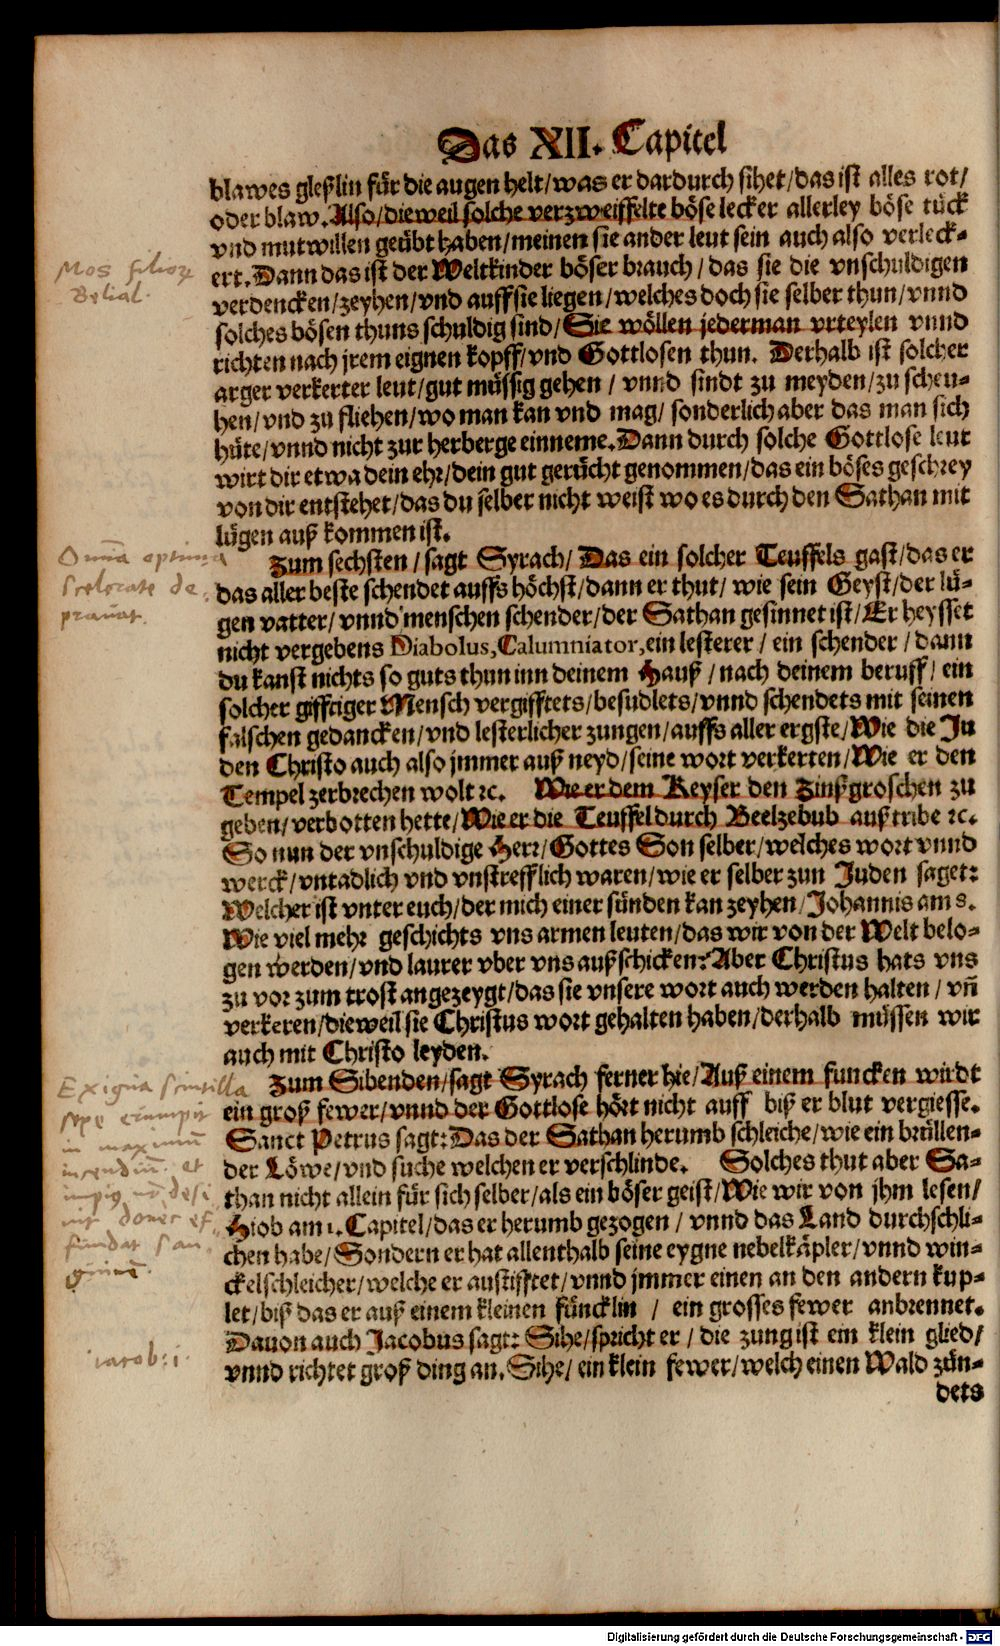 Das XII. Capitel
blawes gleßlin für die augen helt/was er dardurch sihet/das ist alles rot/
oder blaw. Also/dieweil solche verzweiffelte böse lecker allerley böse tück
vnd mutwillen geübt haben/meinen sie ander leut sein auch also verleck-
ert. Dann das ist der Weltkinder böser brauch/das sie die vnschuldigen
Mos filioꝝ
Belial.
verdencken/zeyhen/vnd auff sie liegen/welches doch sie selber thun/vnnd
solches bösen thuns schuldig sind/Sie wöllen jederman vrteylen vnnd
richten nach jrem eignen kopff/vnd Gottlosen thun. Derhalb ist solcher
arger verkerter leut/gut müssig gehen/vnnd sindt zu meyden/zu scheu-
hen/vnd zu fliehen/wo man kan vnd mag/sonderlich aber das man sich
hüte/vnnd nicht zur herberge einneme. Dann durch solche Gottlose leut
wirt dir etwa dein ehr/dein gut gerücht genommen/das ein böses geschrey
von dir entstehet/das du selber nicht weist wo es durch den Sathan mit
lügen auß kommen ist.
Zum sechsten/sagt Syrach/Das ein solcher Teuffels gast/das er
Omnia optima
scelerate de
prauat.
das aller beste schendet auffs höchst/dann er thut/wie sein Geyst/der lü-
gen vatter/vnnd menschen schender/der Sathan gesinnet ist/Er heysset
nicht vergebens Diabolus, Calumniator, ein lesterer/ein schender/dann
du kanst nichts so guts thun inn deinem Hauß/nach deinem beruff/ein
solcher gifftiger Mensch vergifftets/besudlets/vnnd schendets mit seinen
falschen gedancken/vnd lesterlicher zungen/auffs aller ergste/Wie die Ju
den Christo auch also jmmer auß neyd/seine wort verkerten/Wie er den
Tempel zerbrechen wolt ꝛc. Wie er dem Keyser den Zinßgroschen zu
geben/verbotten hette/Wie er die Teuffel durch Beelzebub auß tribe ꝛc.
So nun der vnschuldige Herr/Gottes Son selber/welches wort vnnd
werck/vntadlich vnd vnstrefflich waren/wie er selber zun Juden saget:
Welcher ist vnter euch/der mich einer sünden kan zeyhen/Johannis am 8.
Wie viel mehr geschichts vns armen leuten/das wir von der Welt belo-
gen werden/vnd laurer vber vns außschicken? Aber Christus hats vns
zu vor zum trost angezeygt/das sie vnsere wort auch werden halten/vñ
verkeren/dieweil sie Christus wort gehalten haben/derhalb müssen wir
auch mit Christo leyden.
Zum Sibenden/sagt Syrach ferner hie/Auß einem funcken wirdt
Exigua scintilla
sepe erumpit
in maximū
incendiū. et
impiꝰ nō desi
nit donec ef
fundat san
guinē.
ein groß fewer/vnnd der Gottlose hört nicht auff biß er blut vergiesse.
Sanct Petrus sagt: Das der Sathan herumb schleiche/wie ein brüllen-
der Löwe/vnd suche welchen er verschlinde. Solches thut aber Sa-
than nicht allein für sich selber/als ein böser geist/Wie wir von jhm lesen/
Hiob am 1. Capitel/das er herumb gezogen/vnnd das Land durchschli-
chen habe/Sondern er hat allenthalb seine eygne nebelkäpler/vnnd win-
ckelschleicher/welche er anstifftet/vnnd jmmer einen an den andern kup-
let/biß das er auß einem kleinen füncklin/ein grosses fewer anbrennet.
Dauon auch Jacobus sagt: Sihe/spricht er/die zung ist ein klein glied/
iacob: i.
vnnd richtet groß ding an. Sihe/ein klein fewer/welch einen Wald zün-
dets
Digitalisierung gefördert durch die Deutsche Forschungsgemeinschaft - DFG